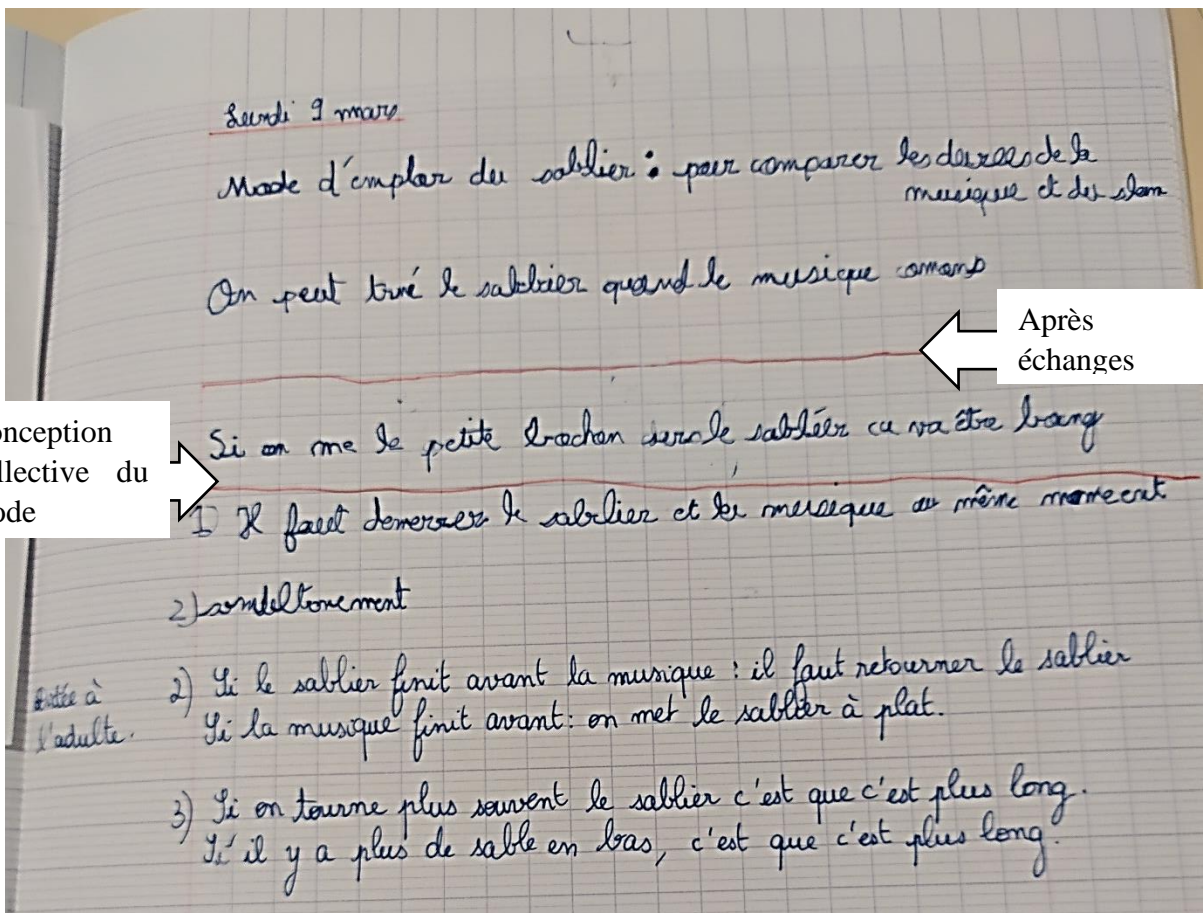 Lundi 9 mars
Mode d'emploi du sablier : pour comparer les durées de la
musique et du slam
On peut tiré le sablier quand le musique comans
Après
échanges
onception
llective du
ode
Si on me le petite bochon sur le sabliér ca va être long
1 Il faut demerrer le sablier et la museque au même moment
2)
dictée à
l'adulte.
2) Si le sablier finit avant la musique : il faut retourner le sablier
Si la musique finit avant : on met le sablier à plat.
3) Si on tourne plus souvent le sablier c'est que c'est plus long.
S'il y a plus de sable en bas, c'est que c'est plus long.